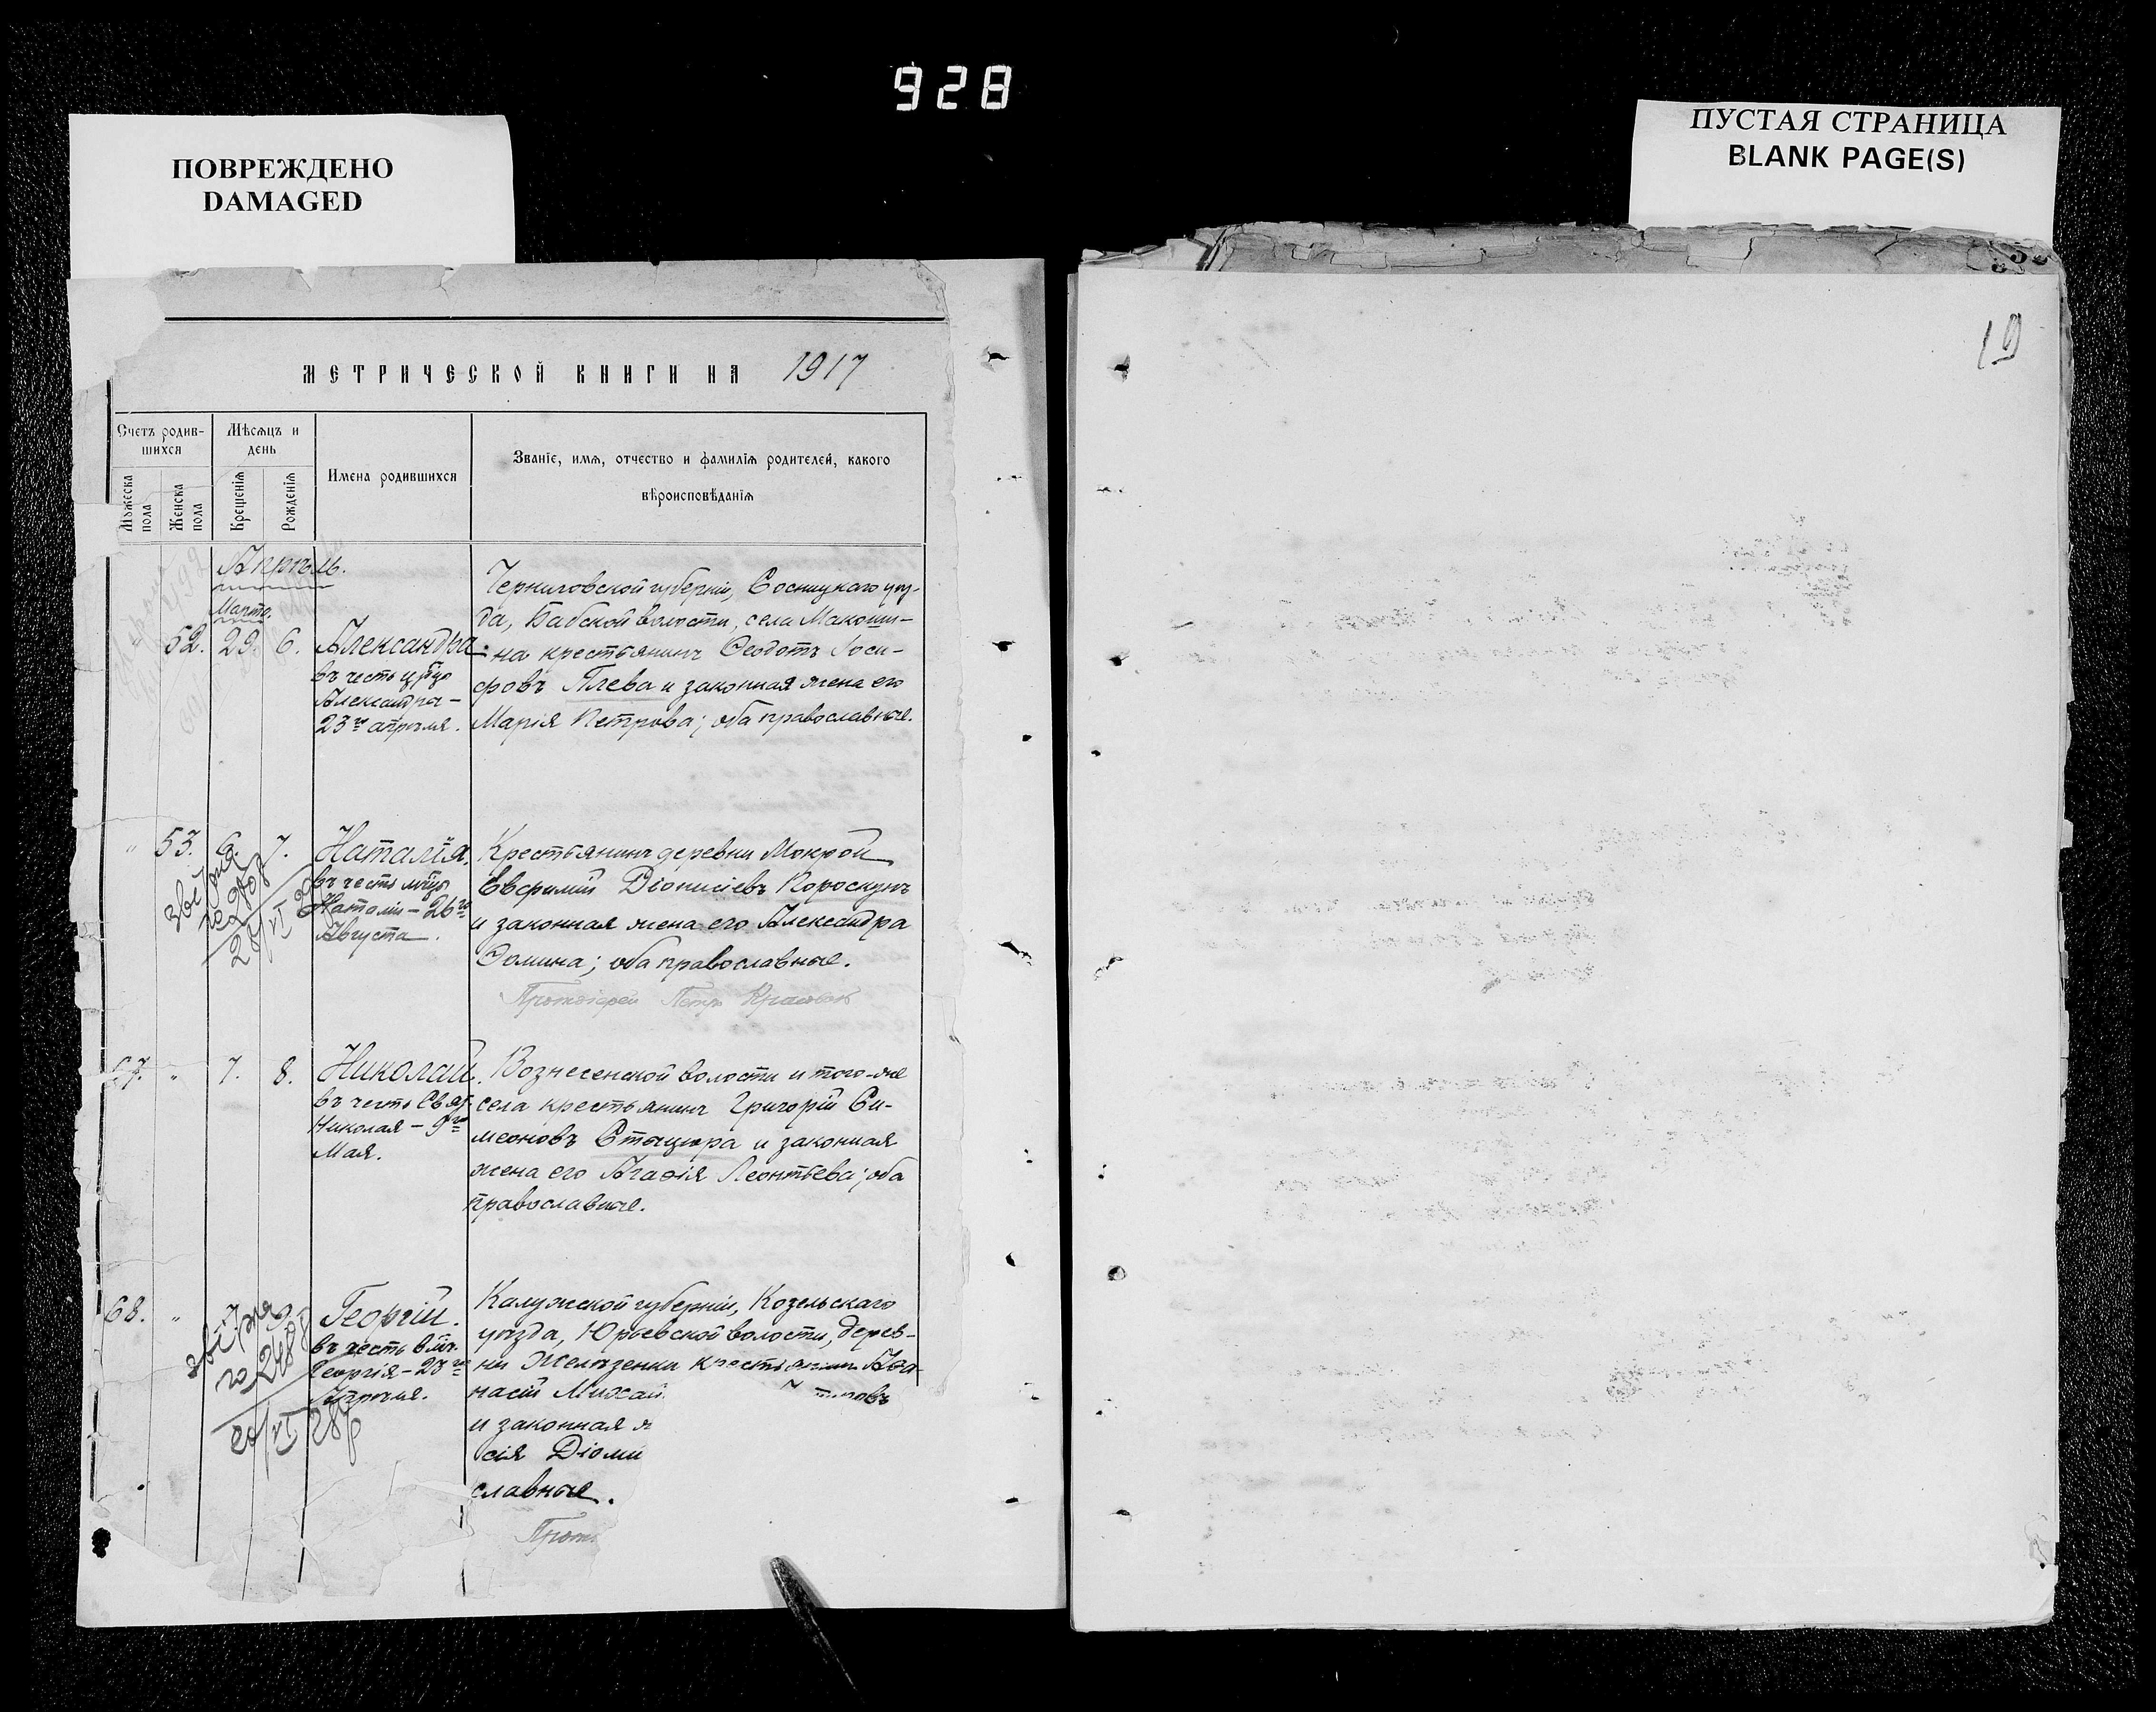 928
ПОВРЕЖДЕНО
DAMAGED
ПУСТАЯ СТРАНИЦА
BLANK PAGE(S)
19
МЕТРИЧЕСКОЙ КНИГИ НА 1917
Счетъ родив-
шихся
Мѣсяцъ и
день
Имена родившихся
Званіе, имя, отчество и фамилія родителей, какого
вѣроисповѣданія
Мужеска
пола
Женска
пола
Крещенія
Рожденія
Апрѣль.
Марта.
52. 29. 6. Александра
въ честь црцы
Александры –
23го апрѣля.
Черниговской губерніи, Сосницкаго уѣз-
да, Бабской волости, села Макоши-
на крестьянинъ Ѳеодотъ Іоси-
фовъ Плева и законная жена его
Марія Петрова; оба православные.
" 53. 6. 7. Наталія.
въ честь мцы
Наталіи – 26го
Августа.
Крестьянинъ деревни Мокрой
Евфимій Діонисіевъ Короскунъ
и законная жена его Александра
Ѳомина; оба православные.
Протоіерей Петръ
67. " 7. 8. Николай.
въ честь Свят.
Николая – 9го
Мая.
Вознесенской волости и того-же
села крестьянинъ Григорій Си-
меоновъ Стацюра и законная
жена его Агафія Леонтьева; оба
православные.
68. " 7. 9. Георгій.
въ честь влмч.
Георгія – 23го
Апрѣля.
Калужской губерніи, Козельскаго
уѣзда, Юрьевской волости, дерев-
ни Желѣзенки крестьянинъ Аѳа-
насій Михаи
и законная ж
сія Діоми
славные.
Прото